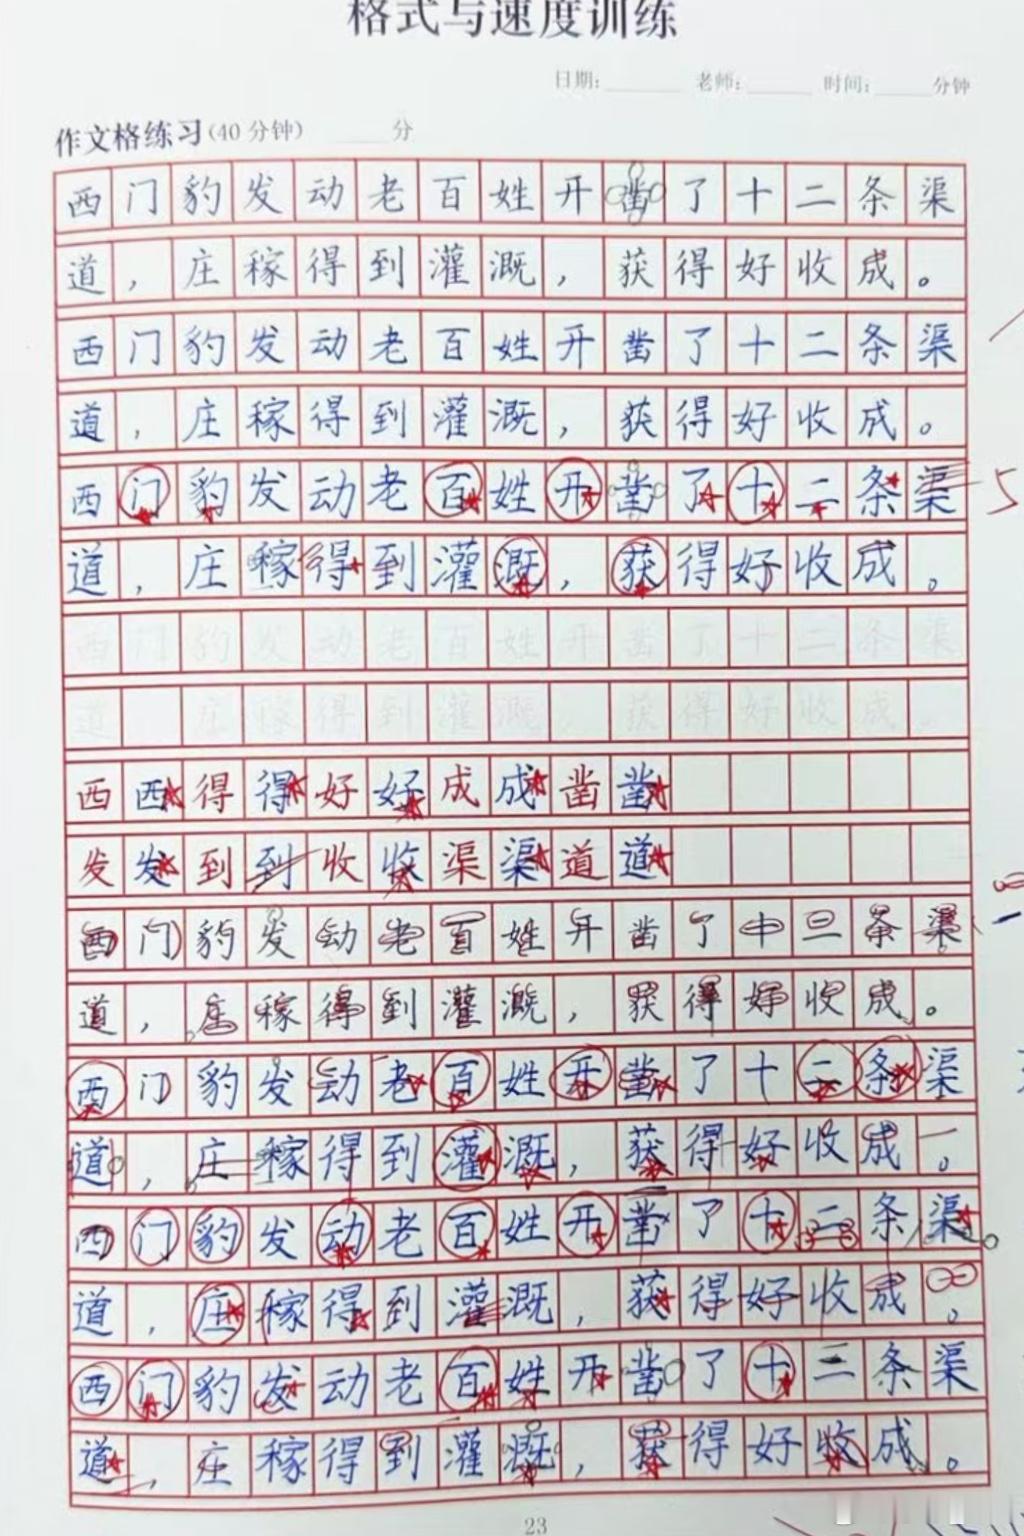 格式与速度训练
日期: 老师: 时间: 分钟
作文格练习(40分钟) 分
西门豹发动老百姓开凿了十二条渠
道，庄稼得到灌溉，获得好收成。
西门豹发动老百姓开凿了十二条渠
道，庄稼得到灌溉，获得好收成。
西门豹发动老百姓开凿了十二条渠
道，庄稼得到灌溉，获得好收成。
西门豹发动老百姓开凿了十二条渠
道，庄稼得到灌溉，获得好收成。
西西得得好好成成凿凿
发发到到收收渠渠道道
西门豹发动老百姓开凿了十二条渠
道，庄稼得到灌溉，获得好收成。
西门豹发动老百姓开凿了十二条渠
道，庄稼得到灌溉，获得好收成。
西门豹发动老百姓开凿了十二条渠
道，庄稼得到灌溉，获得好收成。
西门豹发动老百姓开凿了十二条渠
道，庄稼得到灌溉，获得好收成。
23